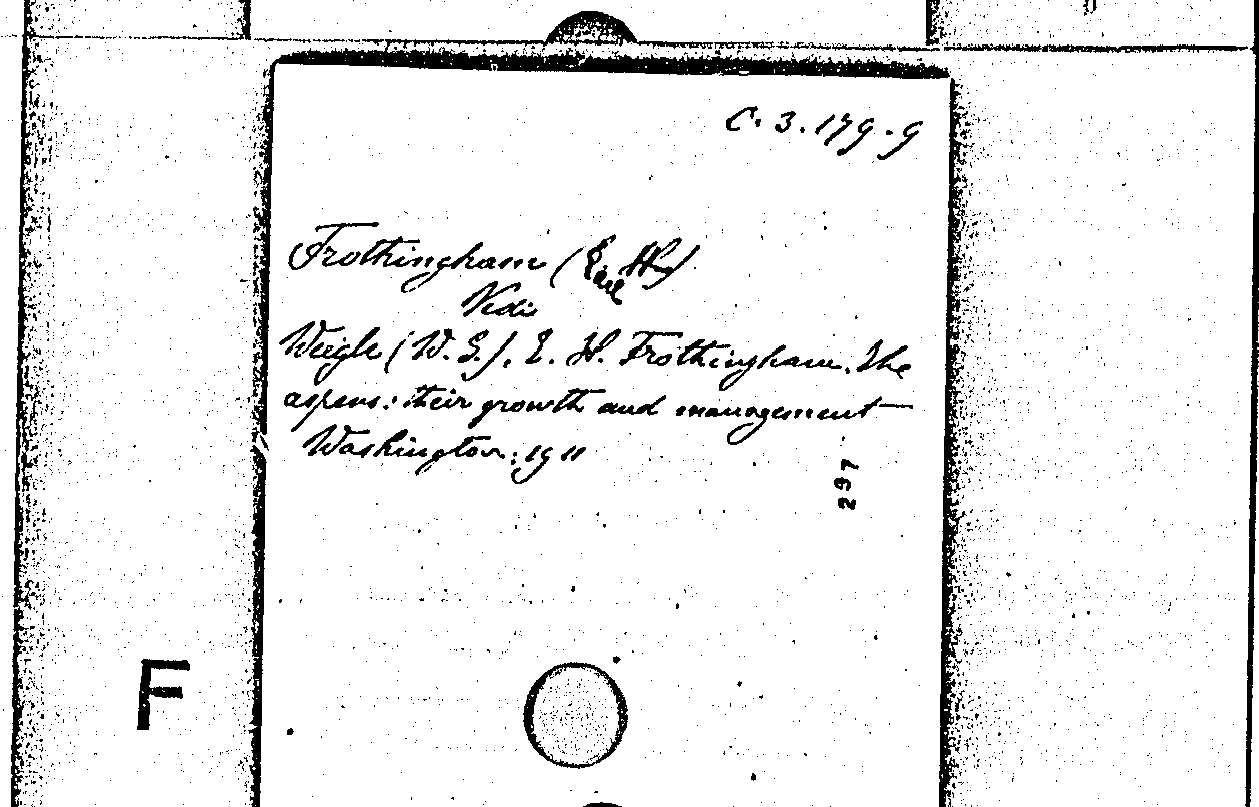 C. 3. 179. 9
Frothingham (Earl H.)
Vedi
Weigle (W. G.), E. H. Frothingham. The
aspens: their growth and management
Washington: 1911
297
F